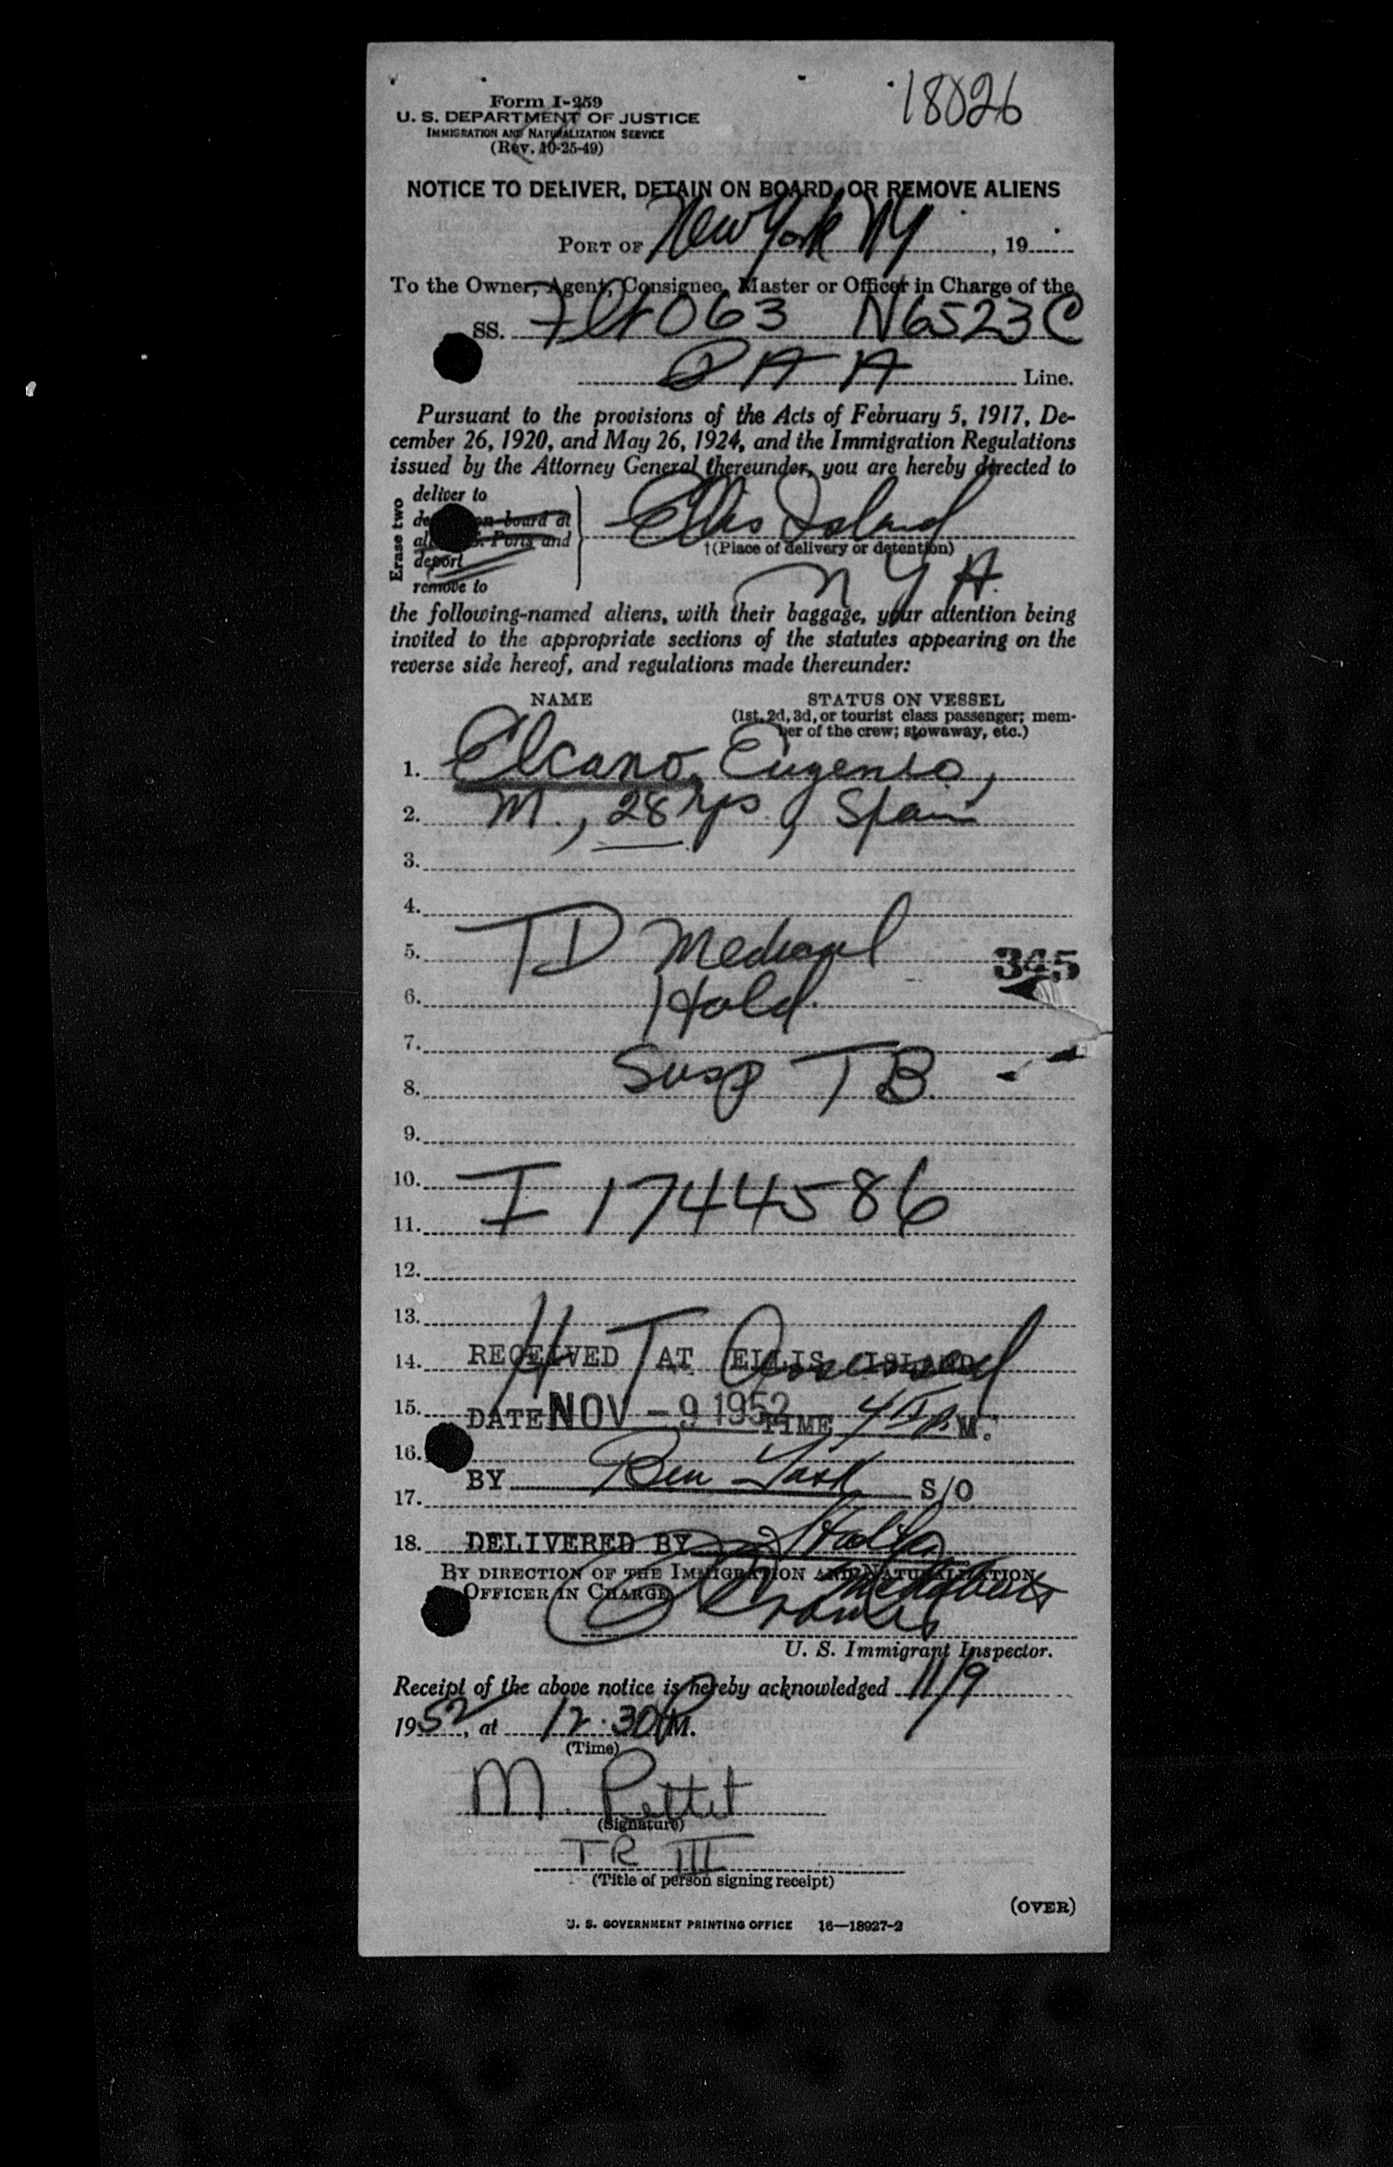 18026
Form I-259
U. S. DEPARTMENT OF JUSTICE
IMMIGRATION AND NATURALIZATION SERVICE
(Rev. 10-25-49)
NOTICE TO DELIVER, DETAIN ON BOARD, OR REMOVE ALIENS
PORT OF New York NY, 19
To the Owner, Agent, Consignee, Master or Officer in Charge of the
SS. Flt 063 N6523C
PAA Line.
Pursuant to the provisions of the Acts of February 5, 1917, De-
cember 26, 1920, and May 26, 1924, and the Immigration Regulations
issued by the Attorney General thereunder, you are hereby directed to
Erase two
deliver to
on board at
Ports and
deport
remove to
Ellis Island
†(Place of delivery or detention)
N Y H.
the following-named aliens, with their baggage, your attention being
invited to the appropriate sections of the statutes appearing on the
reverse side hereof, and regulations made thereunder:
NAME STATUS ON VESSEL
(1st, 2d, 3d, or tourist class passenger; mem-
ber of the crew; stowaway, etc.)
1. Elcano, Eugenio,
2. M., 28 yrs, Spain
3.
4.
5. TD Medical 345
6. Hold.
7.
8. Susp TB.
9.
10.
11. I 1744586
12.
13.
14. RECEIVED AT ELLIS ISLAND
15. DATE NOV - 9 1952 TIME M.
16.
BY Ben S/O
17.
18. DELIVERED BY
BY DIRECTION OF THE IMMIGRATION AND NATURALIZATION
OFFICER IN CHARGE
U. S. Immigrant Inspector.
Receipt of the above notice is hereby acknowledged 11/9
1952, at 12:30 P M.
(Time)
M. Pettit
(Signature)
TR III
(Title of person signing receipt)
(OVER)
U. S. GOVERNMENT PRINTING OFFICE 16—18927-2